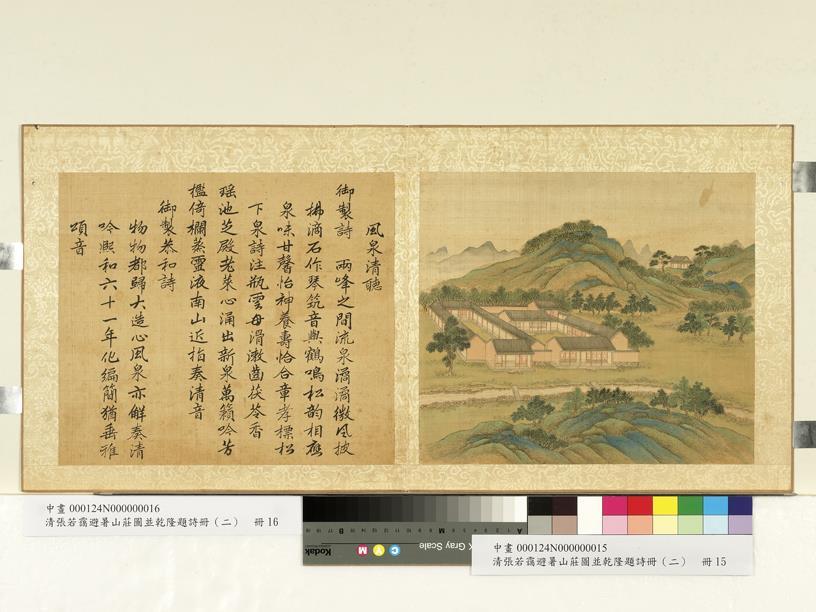 風泉清聽
御製詩　兩峰之間流泉潺潺微風披
拂滴石作琴筑音與鶴鳴松韵相應
泉味甘馨怡神養壽恰合章孝標松
下泉詩注瓶雲母滑漱齒茯苓香
瑶池芝殿老萊心涌出新泉萬籟吟芳
檻倚欄蒸靈液南山近指奏清音
御製恭和詩
物物都歸大造心風泉亦解奏清
吟熙和六十一年化編簡猶垂雅
頌音
中畫 000124N000000016
清張若靄避暑山莊圖並乾隆題詩冊（二）　冊 16
Kodak
Gray Scale
C
Y
M
A
M
B
中畫 000124N000000015
清張若靄避暑山莊圖並乾隆題詩冊（二）　冊 15